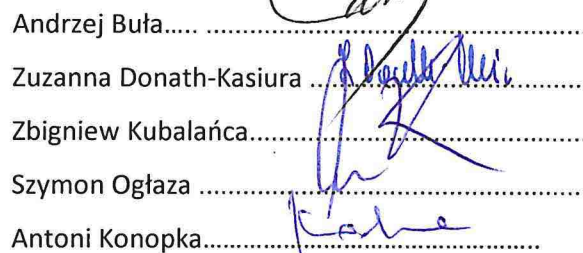 Andrzej Buła..... ..........................................................
Zuzanna Donath-Kasiura ..........................................
Zbigniew Kubalańca....................................................
Szymon Ogłaza ..........................................................
Antoni Konopka....................................................